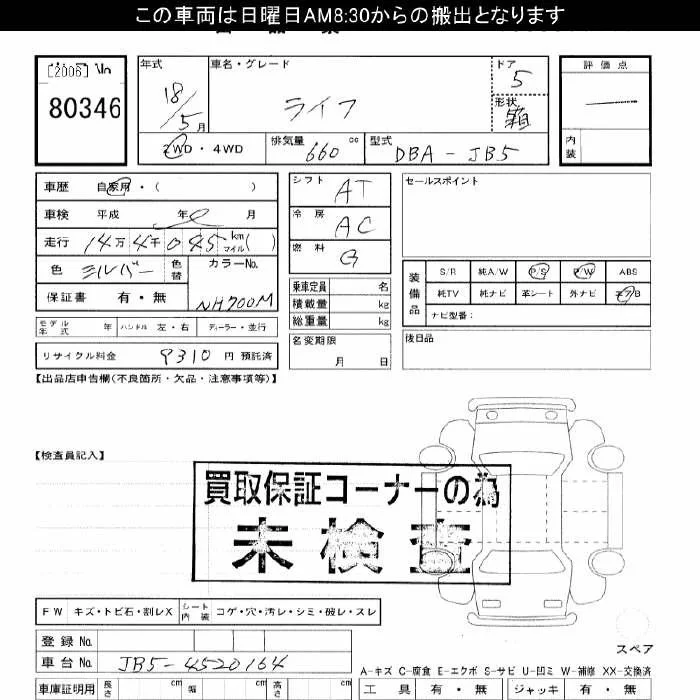 この車両は日曜日AM8:30からの搬出となります
[2006] No
80346
年式 車名・グレード ドア 評価点
18/5月 ライフ 5
形状 箱
2WD・4WD 排気量 660cc 型式 DBA-JB5 内装
車歴 自家用・( )
車検 平成 年 月
走行 14万4千045km マイル( )
色 シルバー 色替 カラーNo. NH700M
保証書 有・無
シフト AT
冷房 AC
燃料 G
乗車定員 名
積載量 kg
総重量 kg
セールスポイント
装備品 S/R 純A/W P/S P/W ABS
純TV 純ナビ 革シート 外ナビ エアB
ナビ型番:
モデル年式 年 ハンドル 左・右 ディーラー・並行
名変期限 月 日
後日品
リサイクル料金 9310 円 預託済
【出品店申告欄(不良箇所・欠品・注意事項等)】
【検査員記入】
買取保証コーナーの為
未検査
FW キズ・トビ石・割レX シート内装 コゲ・穴・汚レ・シミ・破レ・スレ
登録No
車台No JB5-4520164
スペア
A-キズ C-腐食 E-エクボ S-サビ U-凹ミ W-補修 XX-交換済
車庫証明用 長さ cm 幅 cm 高さ cm 工具 有・無 ジャッキ 有・無